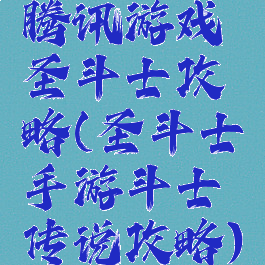 腾讯游戏
圣斗士攻
略(圣斗士
手游斗士
传说攻略)